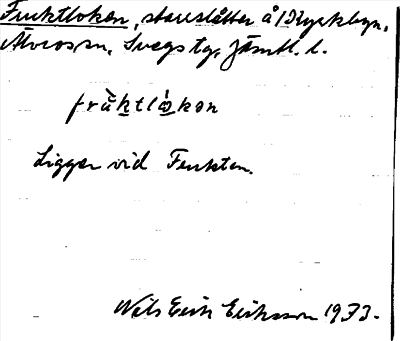 Fruktloken, starrslåtter å 1 Kyrkbyn,
Älvros sn, Svegs tg, Jämtl. l.
fråktlòkon
Ligger vid Frukten.
Nils Erik Eriksson 1933.